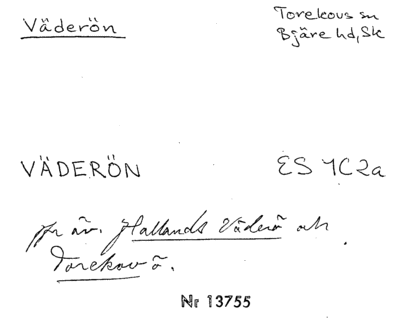 Väderön
Torekovs sn
Bjäre hd, Sk
VÄDERÖN
ES 4C2a
jfr äv. Hallands Väderö och
Torekov ö.
Nr 13755